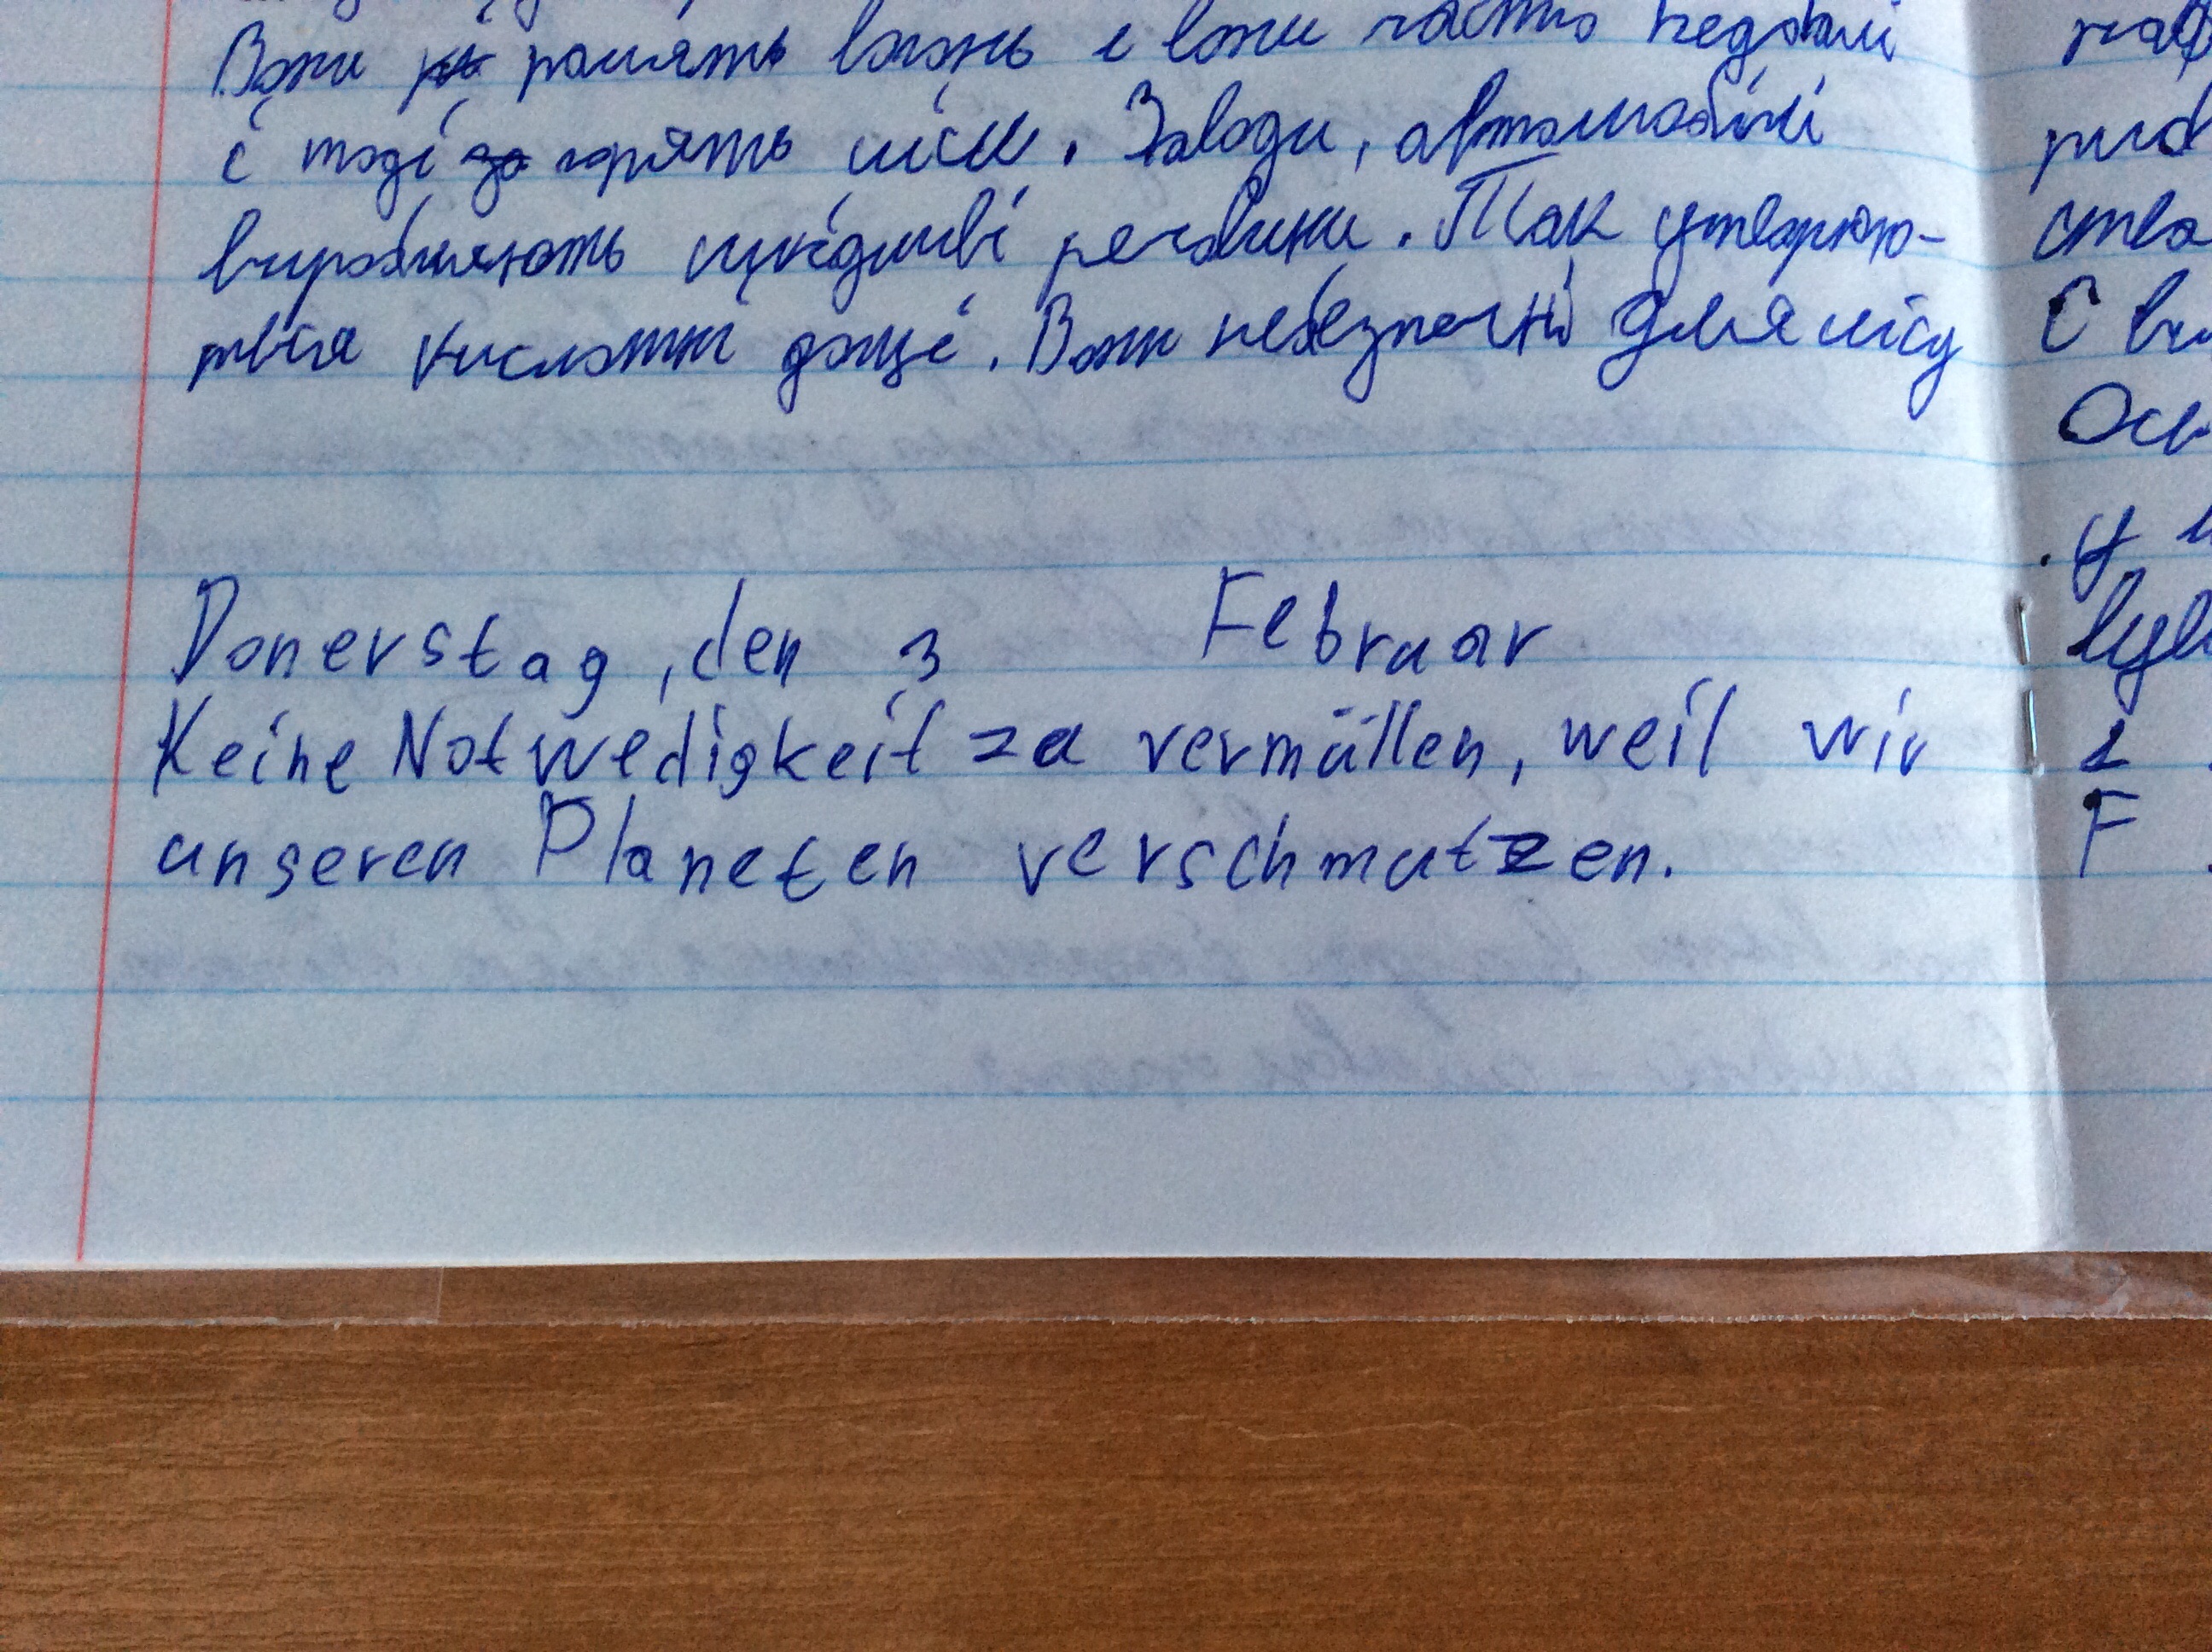 Вони палять вогонь і вони часто недбалі
і тоді горять ліси. Заводи, автомобілі
виробляють шкідливі речовини. Так утворюю-
ться кислотні дощі. Вони небезпечні для лісу
Donerstag, den 3 Februar
Keine Notwedigkeit zu vermüllen, weil wir
unseren Planeten verschmutzen.